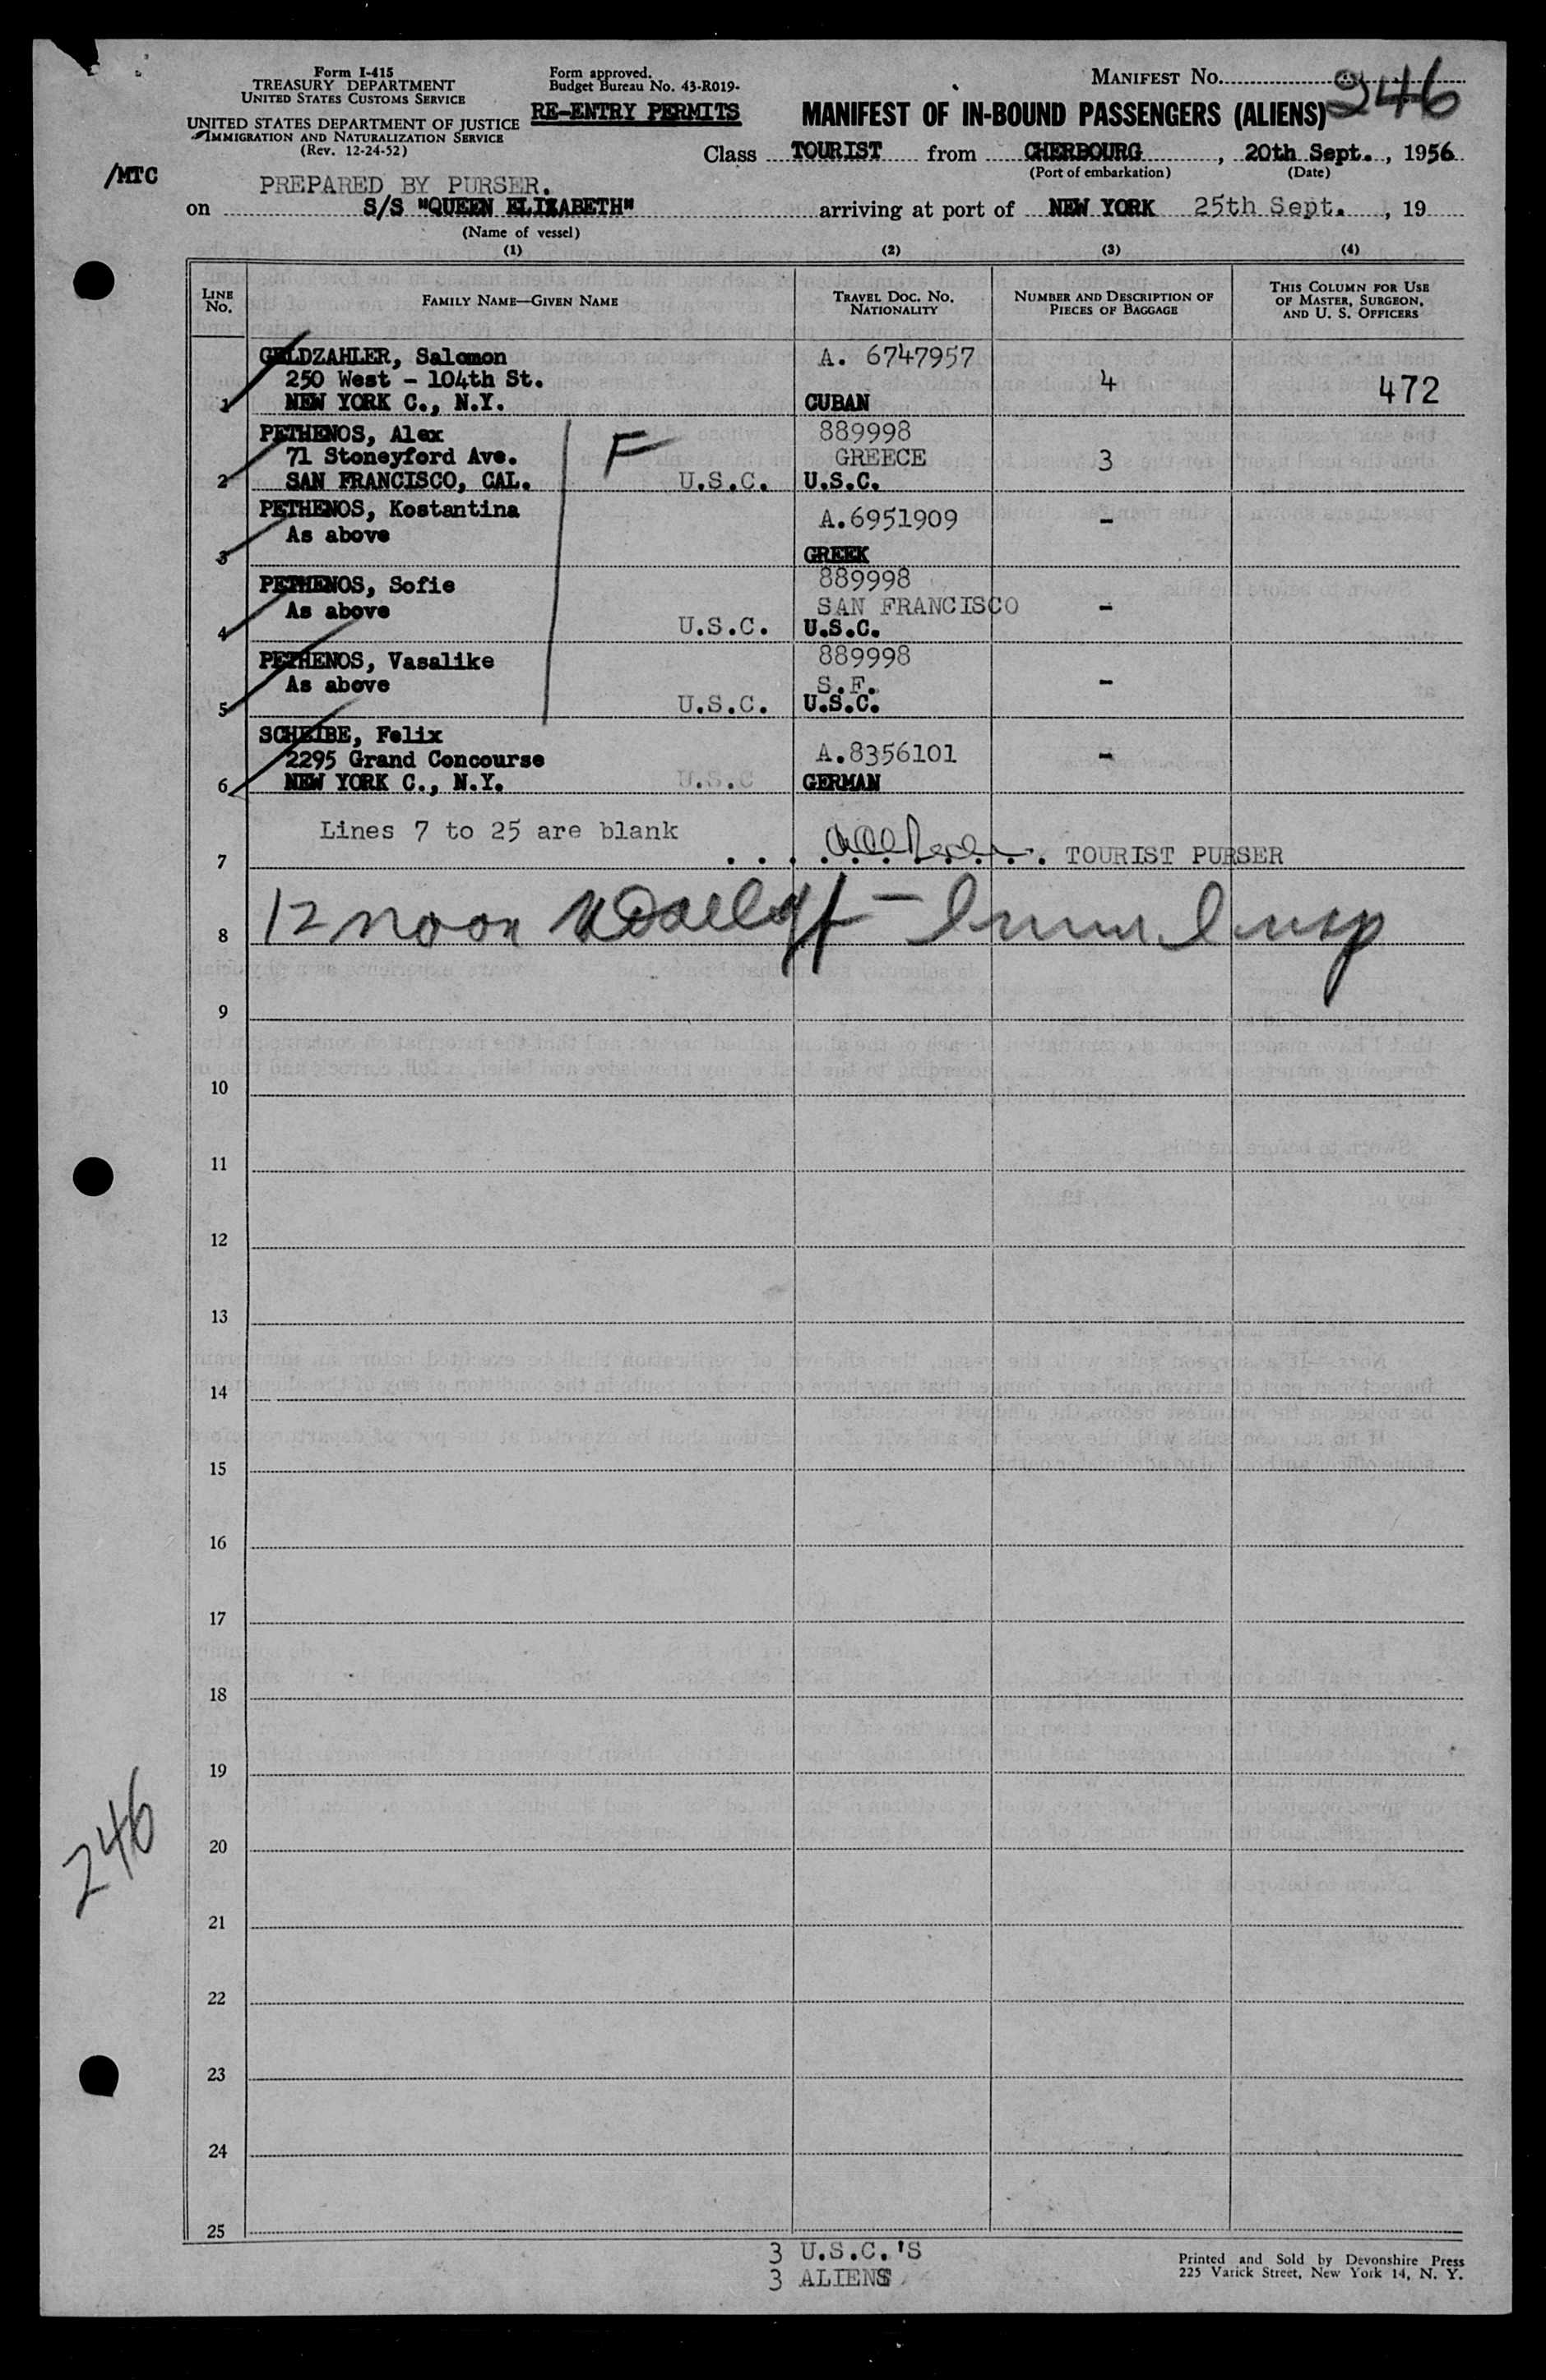 Form I-415
TREASURY DEPARTMENT
UNITED STATES CUSTOMS SERVICE
UNITED STATES DEPARTMENT OF JUSTICE
IMMIGRATION AND NATURALIZATION SERVICE
(Rev. 12-24-52)
Form approved.
Budget Bureau No. 43-R019-
RE-ENTRY PERMITS
MANIFEST NO. 246
MANIFEST OF IN-BOUND PASSENGERS (ALIENS)
Class TOURIST from CHERBOURG, 20th Sept., 1956
(Port of embarkation) (Date)
/MTC
PREPARED BY PURSER.
on S/S "QUEEN ELIZABETH" arriving at port of NEW YORK 25th Sept., 19
(Name of vessel)
(1) (2) (3) (4)
LINE NO. FAMILY NAME—GIVEN NAME TRAVEL DOC. NO. NATIONALITY NUMBER AND DESCRIPTION OF PIECES OF BAGGAGE THIS COLUMN FOR USE OF MASTER, SURGEON, AND U. S. OFFICERS
GELDZAHLER, Salomon A. 6747957
250 West - 104th St. 4 472
1 NEW YORK C., N.Y. CUBAN
PETHENOS, Alex F 889998
71 Stoneyford Ave. GREECE 3
2 SAN FRANCISCO, CAL. U.S.C. U.S.C.
PETHENOS, Kostantina A.6951909 -
As above
3 GREEK
PETHENOS, Sofie 889998
As above SAN FRANCISCO -
4 U.S.C. U.S.C.
PETHENOS, Vasalike 889998
As above S.F. -
5 U.S.C. U.S.C.
SCHEIBE, Felix
2295 Grand Concourse A.8356101 -
6 NEW YORK C., N.Y. U.S.C GERMAN
Lines 7 to 25 are blank
7 TOURIST PURSER
8 12 noon - Immu Insp
9
10
11
12
13
14
15
16
17
18
19
20
21
22
23
24
25
246
3 U.S.C.'S
3 ALIENS
Printed and Sold by Devonshire Press
225 Varick Street, New York 14, N. Y.